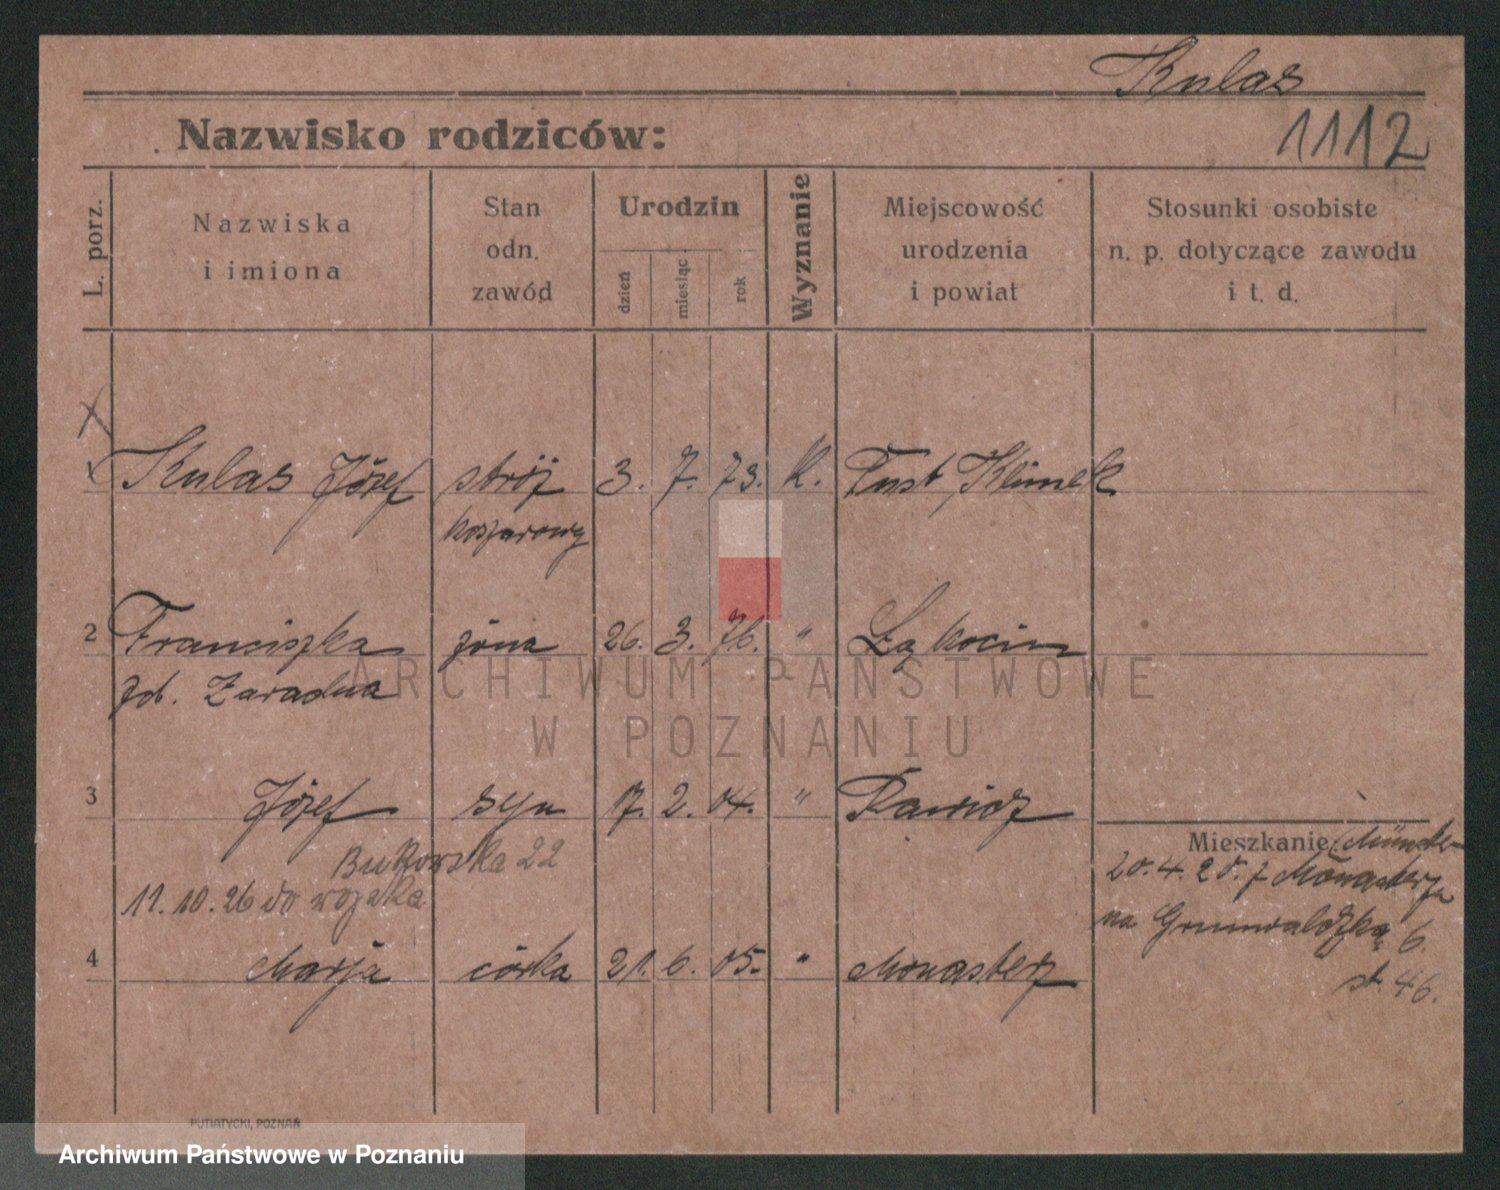 Kulas
Nazwisko rodziców:
1112
L. porz.
Nazwiska
i imiona
Stan
odn.
zawód
Urodzin
dzień
miesiąc
rok
Wyznanie
Miejscowość
urodzenia
i powiat
Stosunki osobiste
n. p. dotyczące zawodu
i t. d.
1 Kulas Józef stróż 3. 7. 73. K. Pust. Klimek
koszarowy
2 Franciszka żona 26. 3. 76. " Łąkocin
zd. Zaradna
ARCHIWUM PAŃSTWOWE
W POZNANIU
3 Józef syn 17. 2. 04. " Rawicz
Mieszkanie
Bukowska 22
20. 4. 20. z
11. 10. 26 do wojska
na Grunwaldzką 6.
4 Marja córka 21. 6. 05. " Monasterz
st. 46.
PUTIATYCKI, POZNAŃ
Archiwum Państwowe w Poznaniu